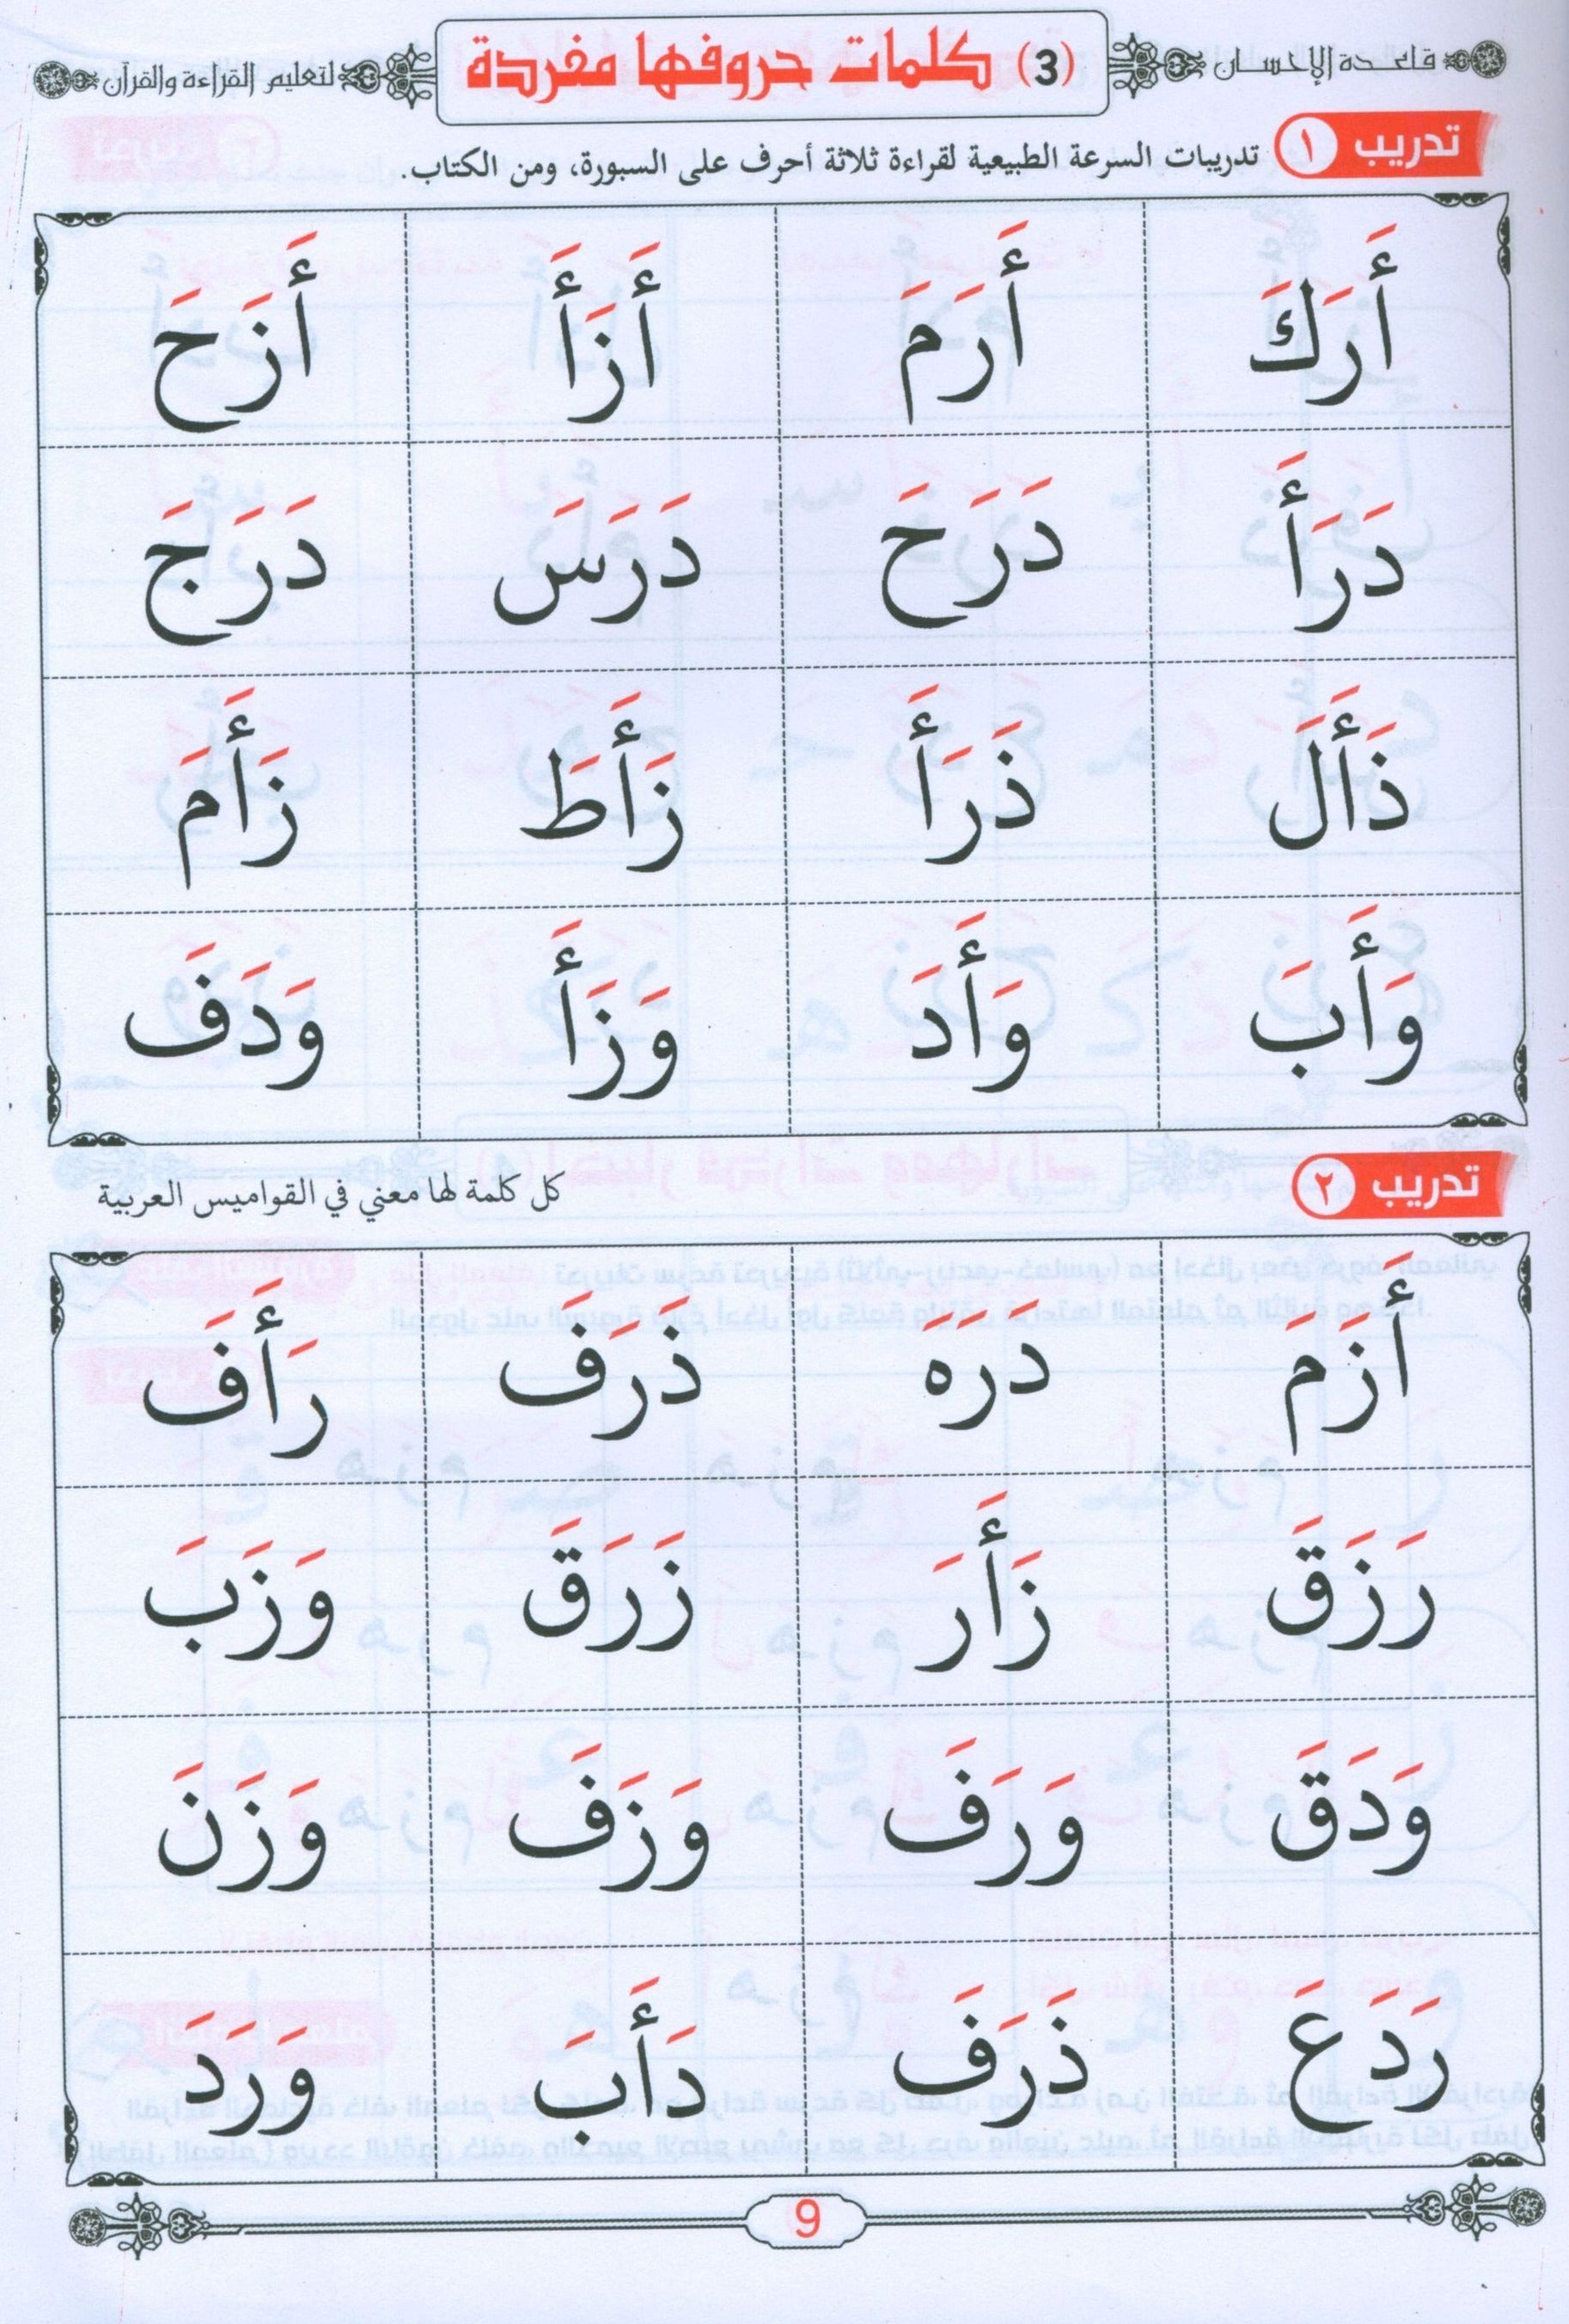 قاعدة الإحسان
(3) كلمات حروفها مفردة
لتعليم القراءة والقرآن
تدريب ١ تدريبات السرعة الطبيعية لقراءة ثلاثة أحرف على السبورة، ومن الكتاب.
أَرَكَ أَرَمَ أَزَأَ أَزَحَ
دَرَأَ دَرَحَ دَرَسَ دَرَجَ
ذَأَلَ ذَرَأَ زَأَطَ زَأَمَ
وَأَبَ وَأَدَ وَزَأَ وَدَفَ
تدريب ٢ كل كلمة لها معني في القواميس العربية
أَزَمَ دَرَهَ ذَرَفَ رَأَفَ
رَزَقَ زَأَرَ زَرَقَ وَزَبَ
وَدَقَ وَرَفَ وَزَفَ وَزَنَ
رَدَعَ ذَرَفَ دَأَبَ وَرَدَ
9